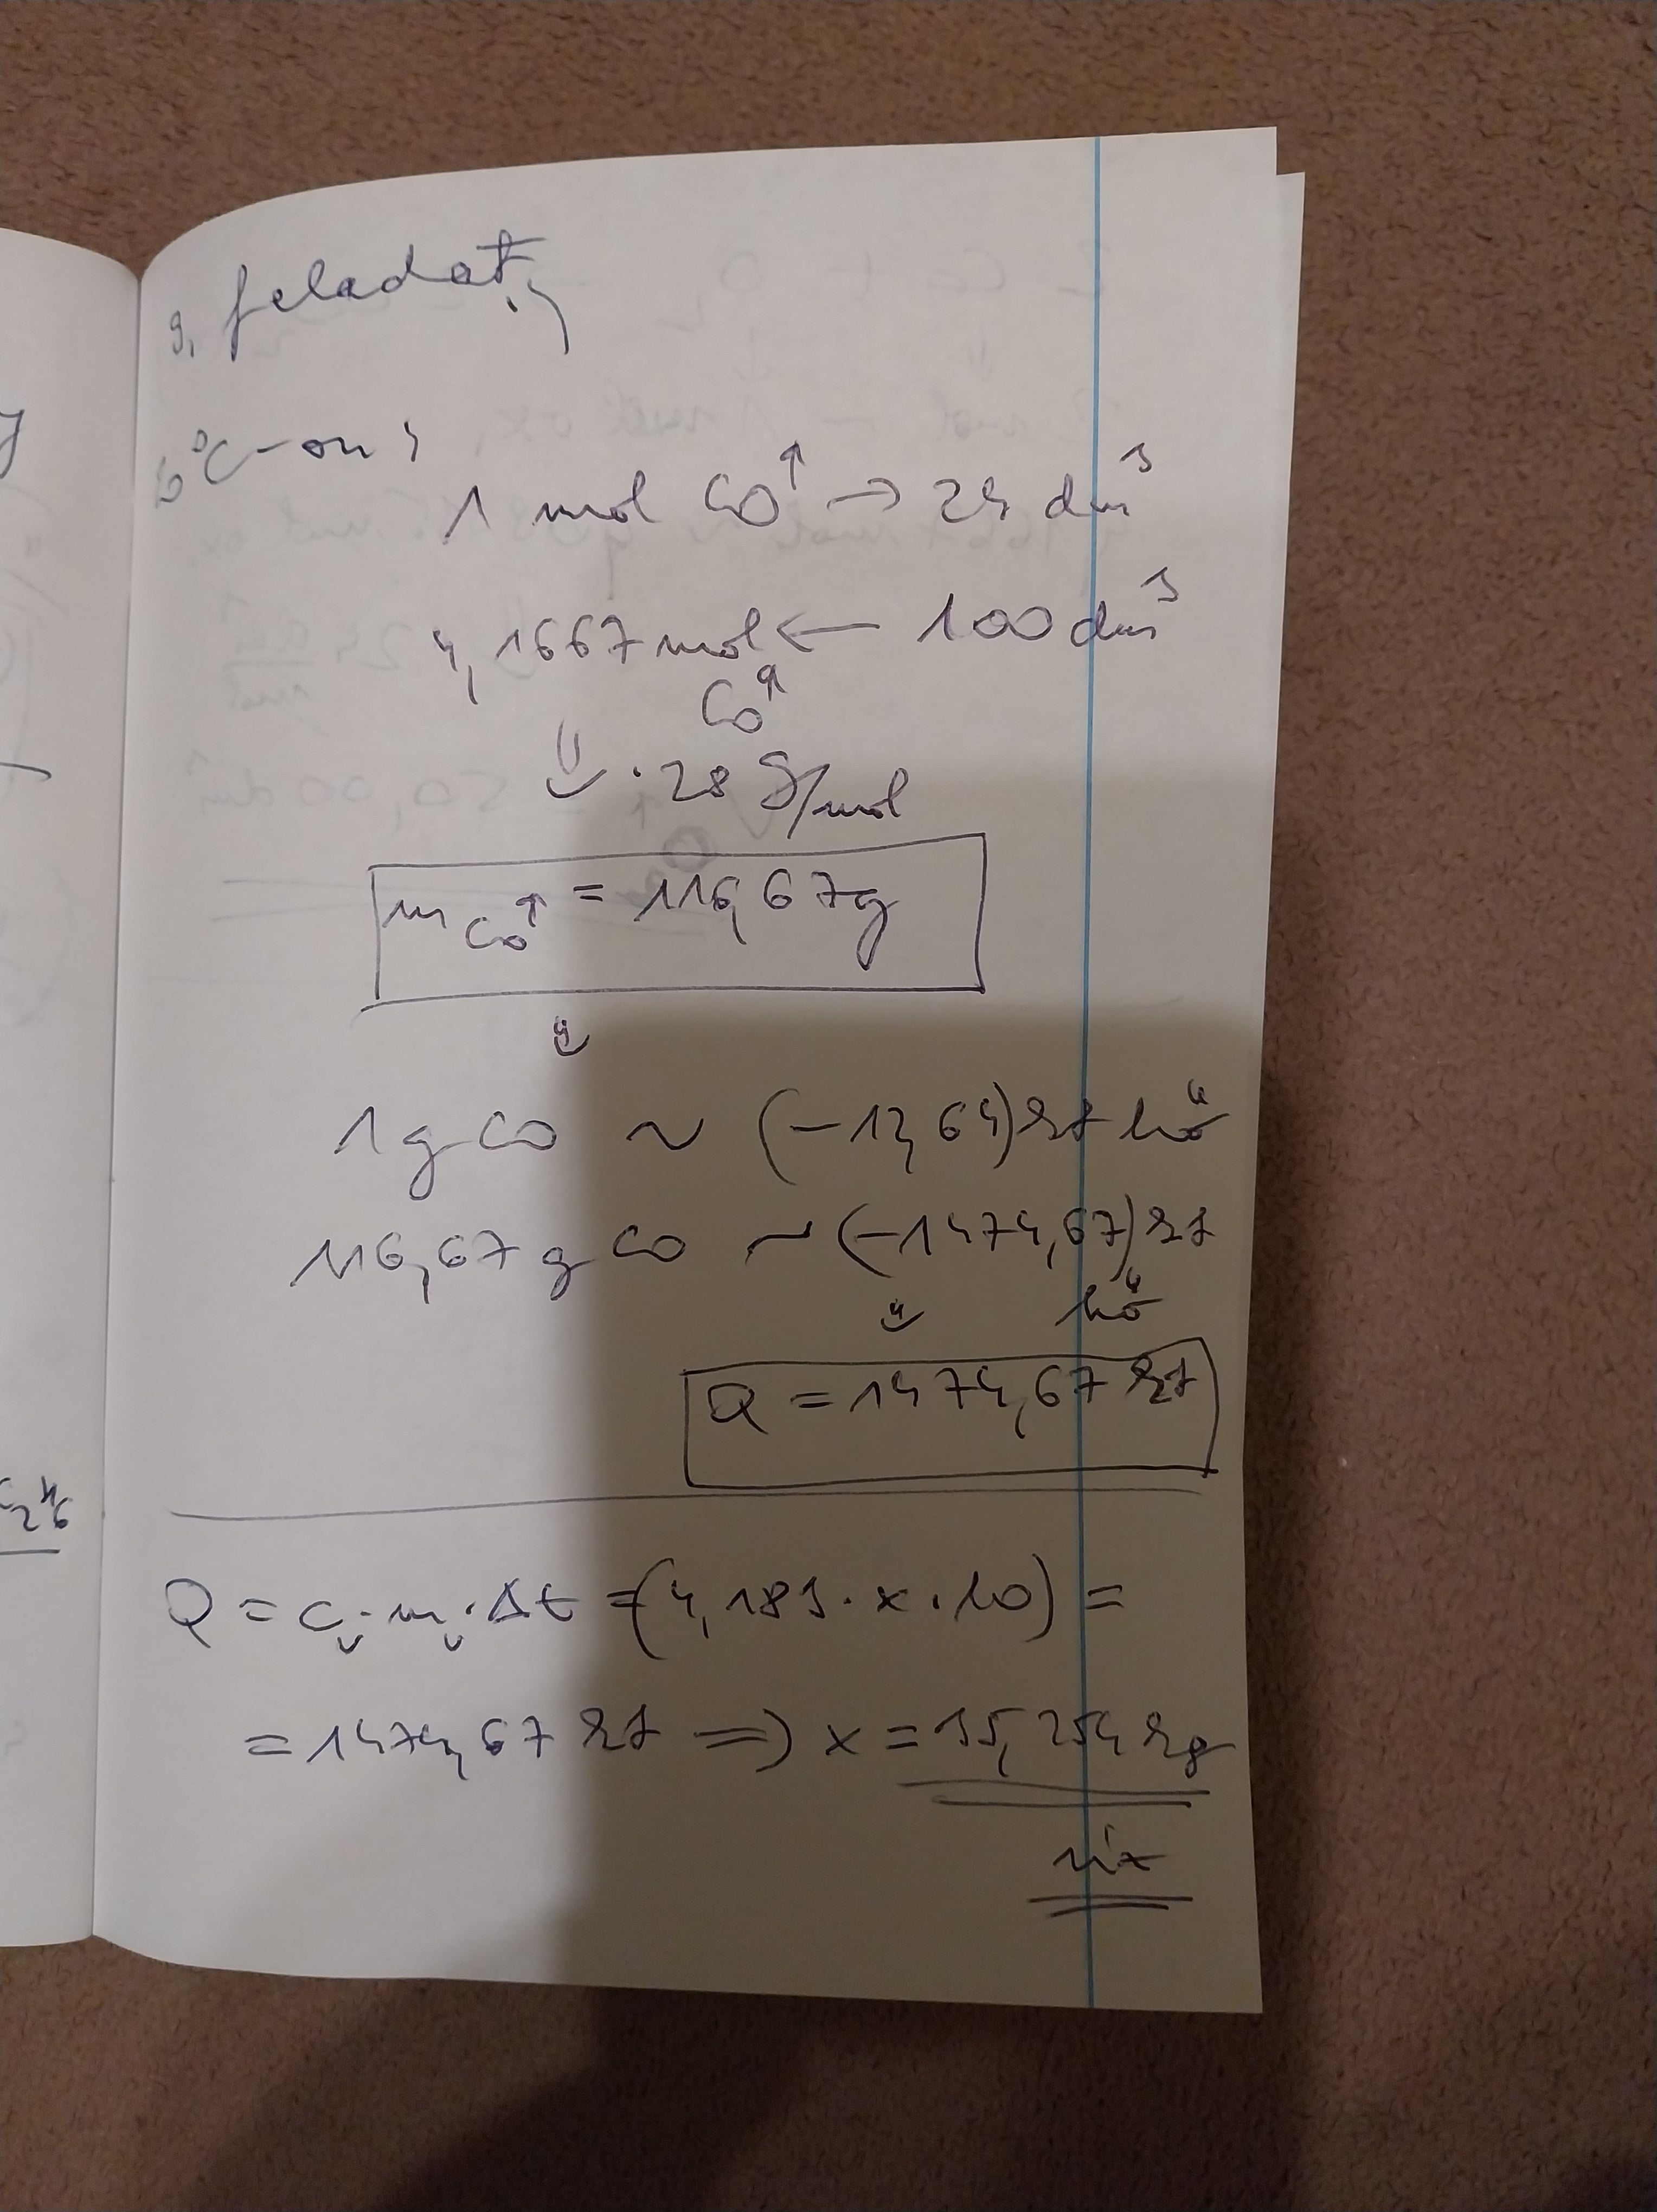 9, feladat,
20°C-on:
1 mol CO↑ → 24 dm³
4,1667 mol ← 100 dm³
CO↑
⇓ · 28 g/mol
m CO↑ = 116,67g
⇓
1g CO ~ (-12,64) kJ hő
116,67 g CO ~ (-1474,67) kJ
⇓ hő
Q = 1474,67 kJ
Q = c · m · Δt = (4,183 · x · 10) =
= 1474,67 kJ ⇒ x = 35,254 kg
víz